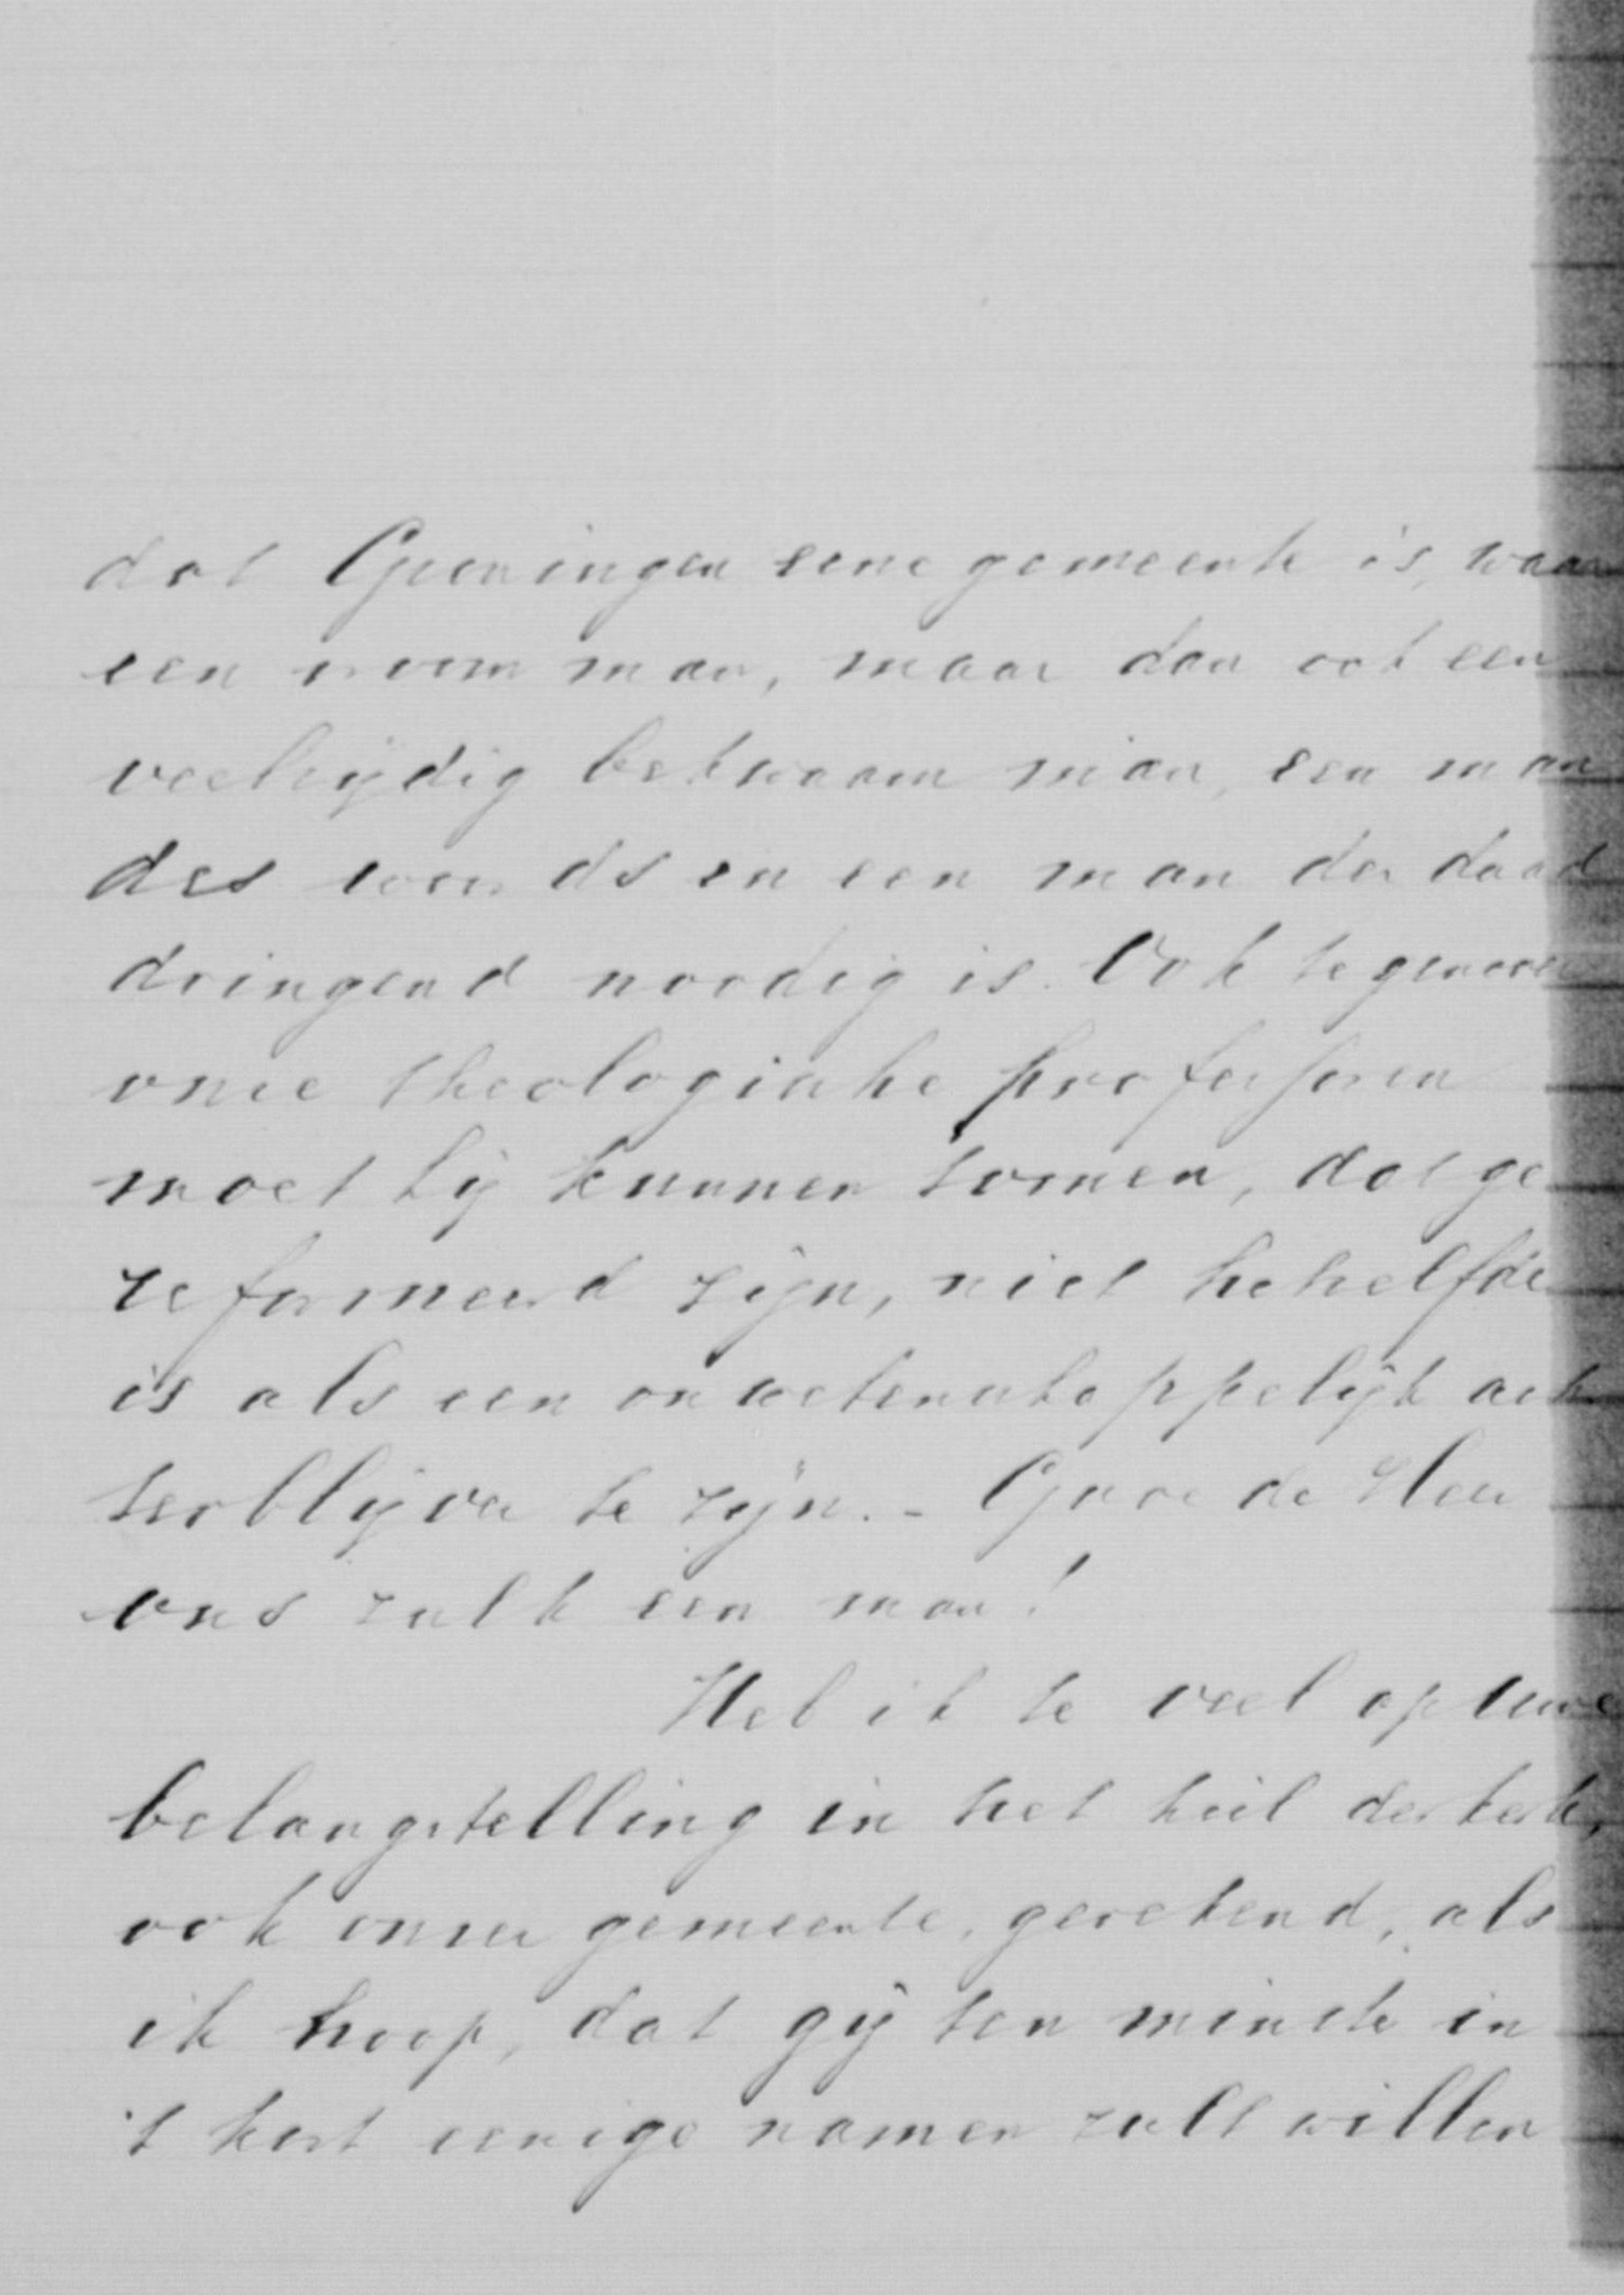 dat Groningen eene gemeente is, waar
een vroom man, maar dan ook een
veelzijdig bekwaam man, een man
des woords en een man der daad
dringend noodig is. Ook tegenover
onze theologische professoren
moet hij kunnen toonen, dat ge
reformeerd zijn, niet hetzelfde
is als een onwetenschappelijk ach
terblijver te zijn. - Geve de Heer
ons zulk een man!
Heb ik te veel op uwe
belangstelling in het heil der kerk,
ook onzer gemeente, gerekend, als
ik hoop, dat gij ten minste in
't kort eenige namen zult willen